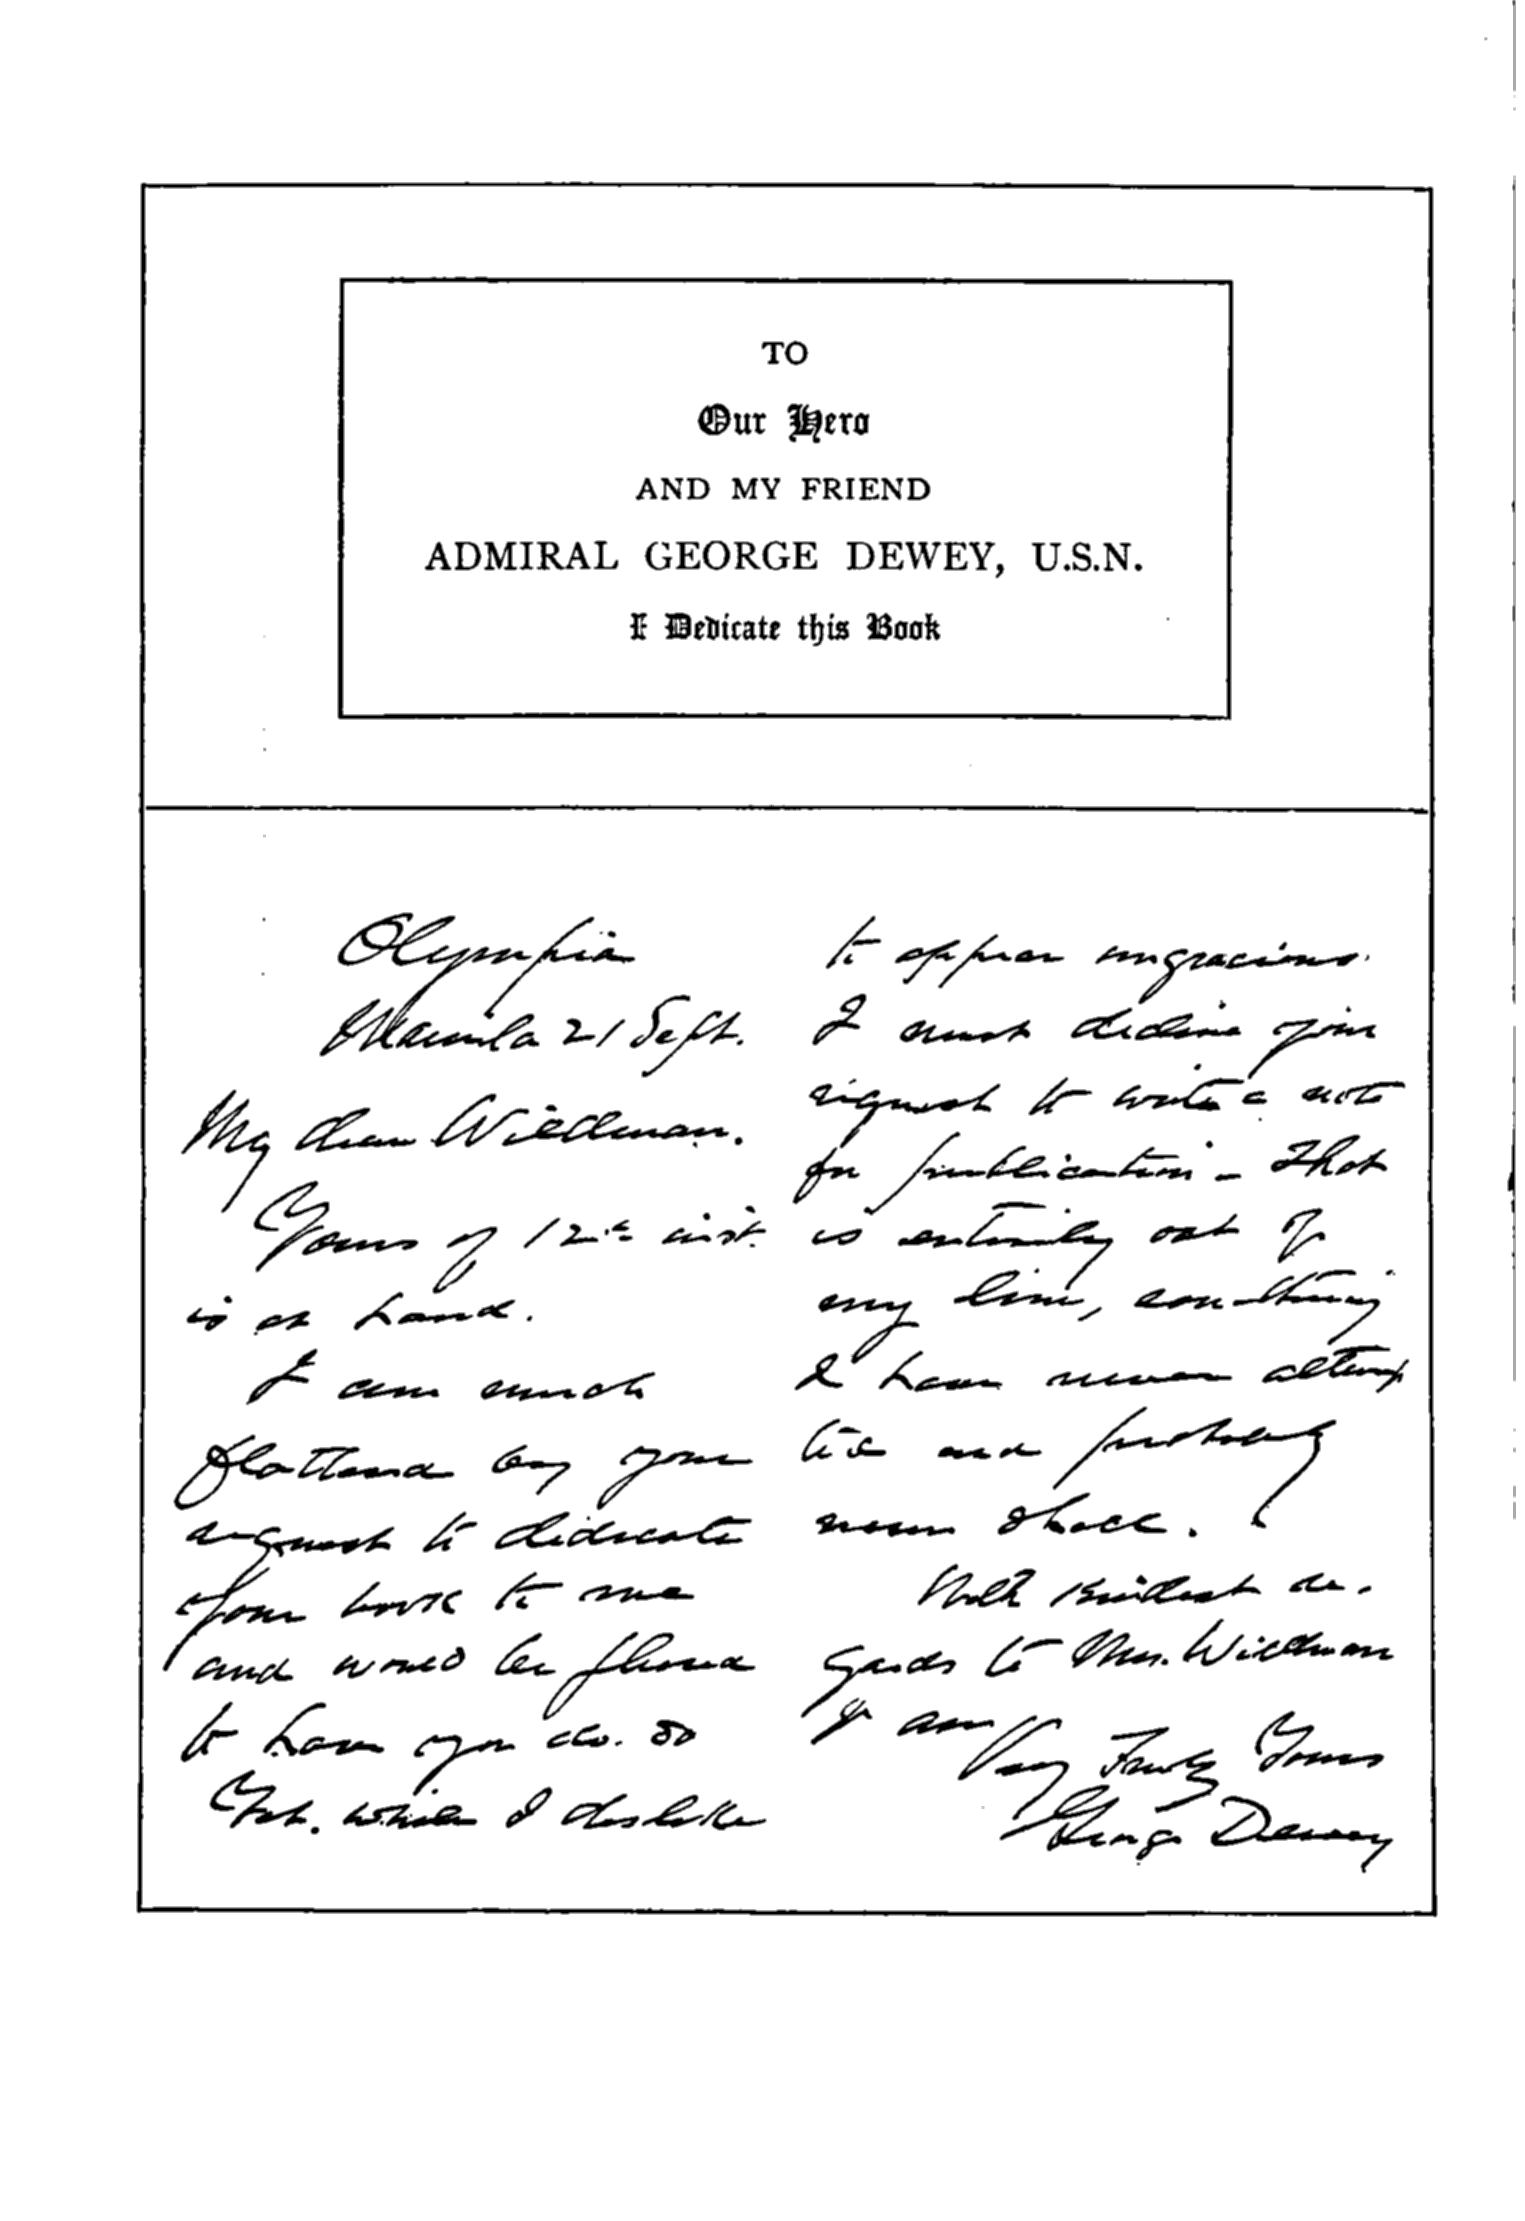 TO
Our Hero
AND MY FRIEND
ADMIRAL GEORGE DEWEY, U.S.N.
I Dedicate this Book
Olympia
Manila 21 Sept.
My dear Wildman.
Yours of 12th inst.
is at hand.
I am much
flattered by your
request to dedicate
your book to me
and would be pleased
to have you do so
Yet, while I dislike
to appear ungracious.
I must decline your
request to write a note
for publication - That
is entirely out of
my line, something
I have never attemp
ted and probably
never shall.
With kindest re-
gards to Mrs. Wildman
I am
Very Truly Yours
George Dewey